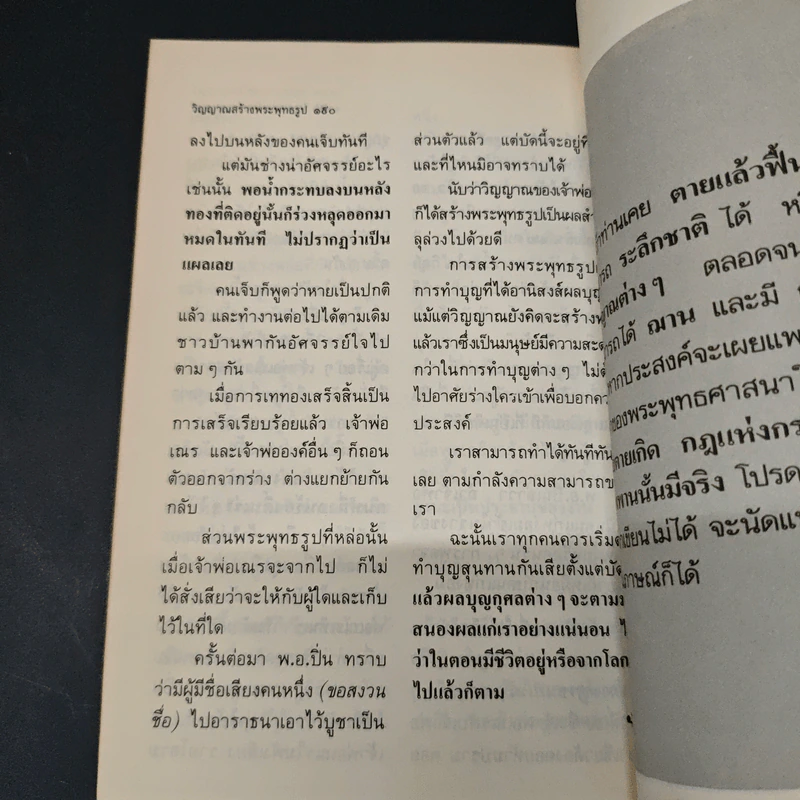 วิญญาณสร้างพระพุทธรูป ๑๙๐
ลงไปบนหลังของคนเจ็บทันที
แต่มันช่างน่าอัศจรรย์อะไร
เช่นนั้น พอน้ำกระทบลงบนหลัง
ทองที่ติดอยู่นั้นก็ร่วงหลุดออกมา
หมดในทันที ไม่ปรากฏว่าเป็น
แผลเลย
คนเจ็บก็พูดว่าหายเป็นปกติ
แล้ว และทำงานต่อไปได้ตามเดิม
ชาวบ้านพากันอัศจรรย์ใจไป
ตาม ๆ กัน
เมื่อการเททองเสร็จสิ้นเป็น
การเสร็จเรียบร้อยแล้ว เจ้าพ่อ
เณร และเจ้าพ่อองค์อื่น ๆ ก็ถอน
ตัวออกจากร่าง ต่างแยกย้ายกัน
กลับ
ส่วนพระพุทธรูปที่หล่อนั้น
เมื่อเจ้าพ่อเณรจะจากไป ก็ไม่
ได้สั่งเสียว่าจะให้กับผู้ใดและเก็บ
ไว้ในที่ใด
ครั้นต่อมา พ.อ.ปิ่น ทราบ
ว่ามีผู้มีชื่อเสียงคนหนึ่ง (ขอสงวน
ชื่อ) ไปอาราธนาเอาไว้บูชาเป็น
ส่วนตัวแล้ว แต่บัดนี้จะอยู่ที่
และที่ไหนมิอาจทราบได้
นับว่าวิญญาณของเจ้าพ่อ
ก็ได้สร้างพระพุทธรูปเป็นผลสำ
ลุล่วงไปด้วยดี
การสร้างพระพุทธรูป
การทำบุญที่ได้อานิสงส์ผลบุญ
แม้แต่วิญญาณยังคิดจะสร้าง
แล้วเราซึ่งเป็นมนุษย์มีความสะ
กว่าในการทำบุญต่าง ๆ
ไปอาศัยร่างใครเข้าเพื่อบอกคว
ประสงค์
เราสามารถทำได้ทันทีทัน
เลย ตามกำลังความสามารถข
เรา
ฉะนั้นเราทุกคนควรเริ่ม
ทำบุญสุนทานกันเสียตั้งแต่บัด
แล้วผลบุญกุศลต่าง ๆ จะตาม
สนองผลแก่เราอย่างแน่นอน
ว่าในตอนมีชีวิตอยู่หรือจากโลก
ไปแล้วก็ตาม
ท่านเคย ตายแล้วฟื้น
ระลึกชาติ ได้
ต่าง ๆ ตลอดจน
ได้ ฌาน และมี
ประสงค์จะเผยแพ
ของพระพุทธศาสนา
ตายเกิด กฎแห่งกร
นั้นมีจริง โปรด
เขียนไม่ได้ จะนัดแน
ภาษณ์ก็ได้